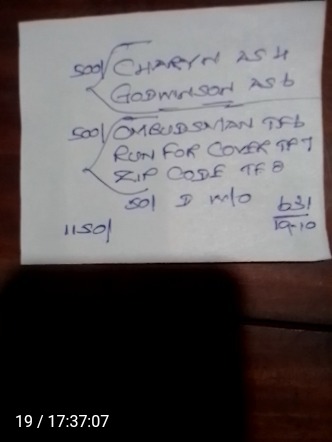 500/ CHARYN AS 4
GODWINSON AS 6
500/ OMBUDSMAN TF6
RUN FOR COVER TF7
ZIP CODE TF 8
50/ D W/O
631
1150/
19-10
19 / 17:37:07